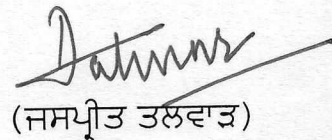 (ਜਸਪ੍ਰੀਤ ਤਲਵਾੜ)